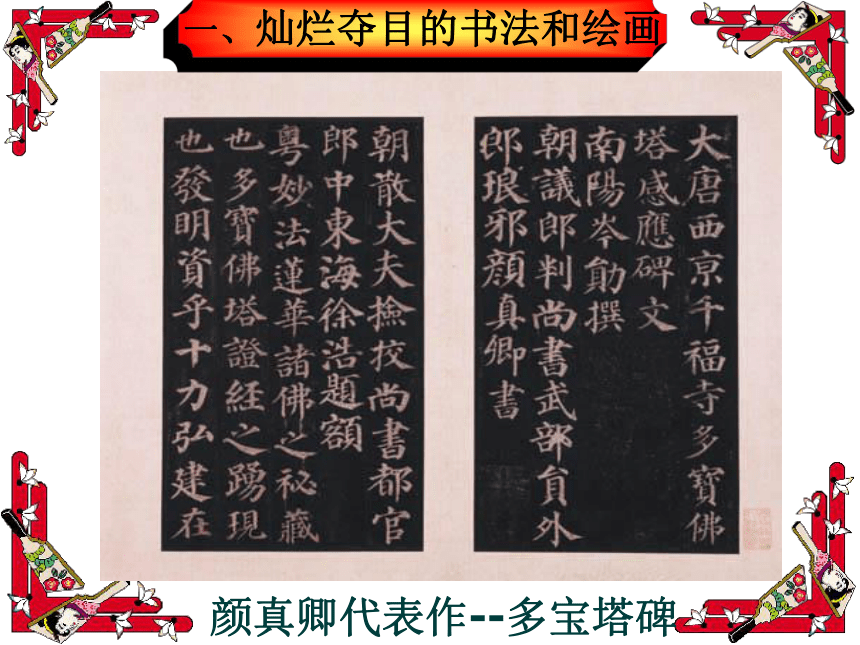 一、灿烂夺目的书法和绘画
大唐西京千福寺多寶佛
塔感應碑文
南陽岑勛撰
朝議郎判尚書武部員外
郎琅邪顏真卿書
朝散大夫撿挍尚書都官
郎中東海徐浩題額
粵妙法蓮華諸佛之祕藏
也多寶佛塔證經之踴現
也發明資乎十力弘建在
颜真卿代表作--多宝塔碑